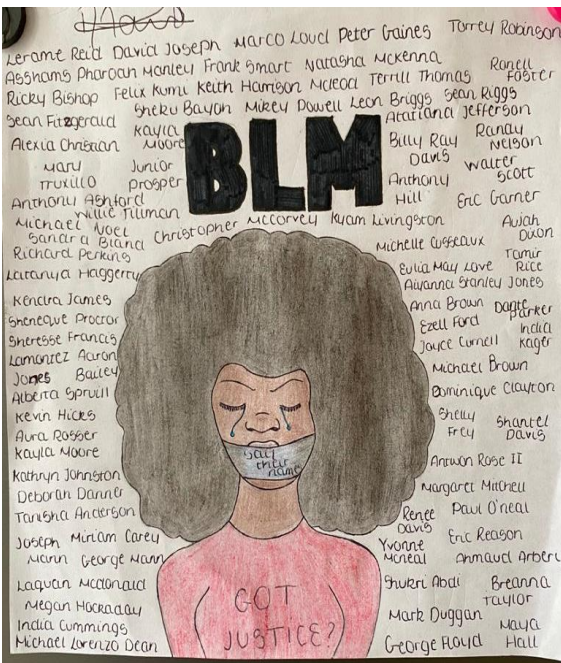 Lerame Reid David Joseph Marco Loud Peter Gaines Torrey Robinson
Asshams Pharoan Manley Frank Smart Natasha Mckenna Ranell Foster
Ricky Bishop Felix Kumi Keith Harrison Mcleod Terrill Thomas
Sean Fitzgerald Sheku Bayoh Mikey Powell Leon Briggs Sean Riggs
Alexia Christian
Kayla Moore
BLM
Atatiana Jefferson
Mary Truxillo
Junior Prosper
Billy Ray Davis
Randy Nelson
Anthony Ashford
Anthony Hill
Walter Scott
Willie Tillman
Eric Garner
Michael Noel
Christopher McCorvey Kyam Livingston
Sandra Bland
Richard Perkins
Michelle Cusseaux
Aviah Dixon
Latanya Haggerty
Eulia May Love
Tamir Rice
Aiyanna Stanley Jones
Kendra James
Anna Brown
Dante Parker
Sheneque Proctor
Ezell Ford
India Kager
Sheresse Francis
Joyce Curnell
Lamontez Jones
Aaron Bailey
Michael Brown
Alberta Spruill
Dominique Clayton
Kevin Hicks
Shelly Frey
Shantel Davis
Aura Rosser
Kayla Moore
Say
their
name
Antwon Rose II
Kathryn Johnston
Margaret Mitchell
Deborah Danner
Tanisha Anderson
Renee Davis
Paul O'neal
Joseph Mann
Miriam Carey
Yvonne Mcneal
Eric Reason
George Mann
Ahmaud Arbery
Laquan Mcdonald
Shukri Abdi
Breanna Taylor
Megan Hockaday
GOT
JUSTICE?
Mark Duggan
India Cummings
Maya Hall
Michael Lorenzo Dean
George Floyd